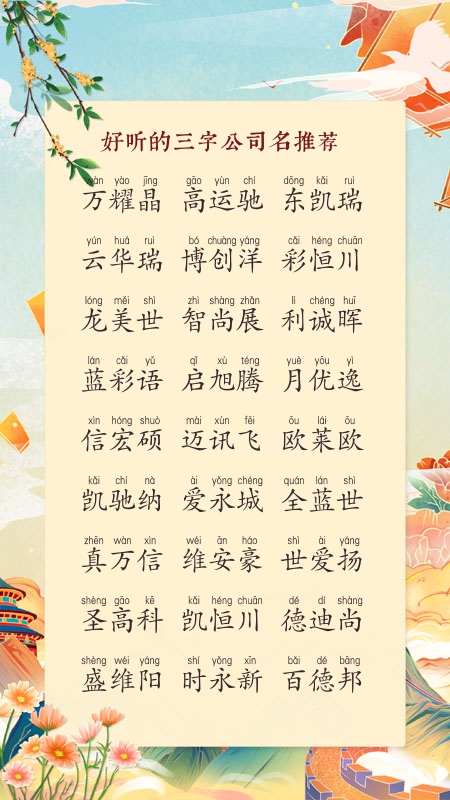 好听的三字公司名推荐
wàn yào jīng gāo yùn chí dōng kǎi ruì
万耀晶 高运驰 东凯瑞
yún huá ruì bó chuàng yáng cǎi héng chuān
云华瑞 博创洋 彩恒川
lóng měi shì zhì shàng zhǎn lì chéng huī
龙美世 智尚展 利诚晖
lán cǎi yǔ qǐ xù téng yuè yōu yì
蓝彩语 启旭腾 月优逸
xìn hóng shuò mài xùn fēi ōu lái ōu
信宏硕 迈讯飞 欧莱欧
kǎi chí nà ài yǒng chéng quán lán shì
凯驰纳 爱永城 全蓝世
zhēn wàn xìn wéi ān háo shì ài yáng
真万信 维安豪 世爱扬
shèng gāo kē kǎi héng chuān dé dí shàng
圣高科 凯恒川 德迪尚
shèng wéi yáng shí yǒng xīn bǎi dé bāng
盛维阳 时永新 百德邦